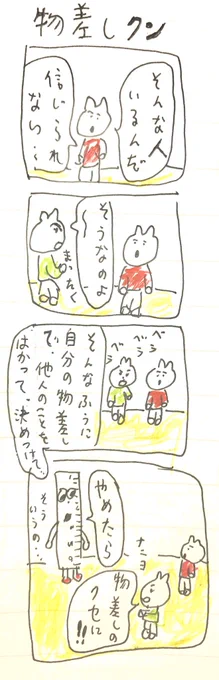 物差しクン
そんな人
いるんだ
信じられ
ない…
そうなのよ
〜
まったく
べらべら
べらべら
そんなふうに
自分の物差し
で、他人のことを
はかって、決めつけて、
やめたら
そう
いうの…
ナニヨ
物差しの
クセに
!!